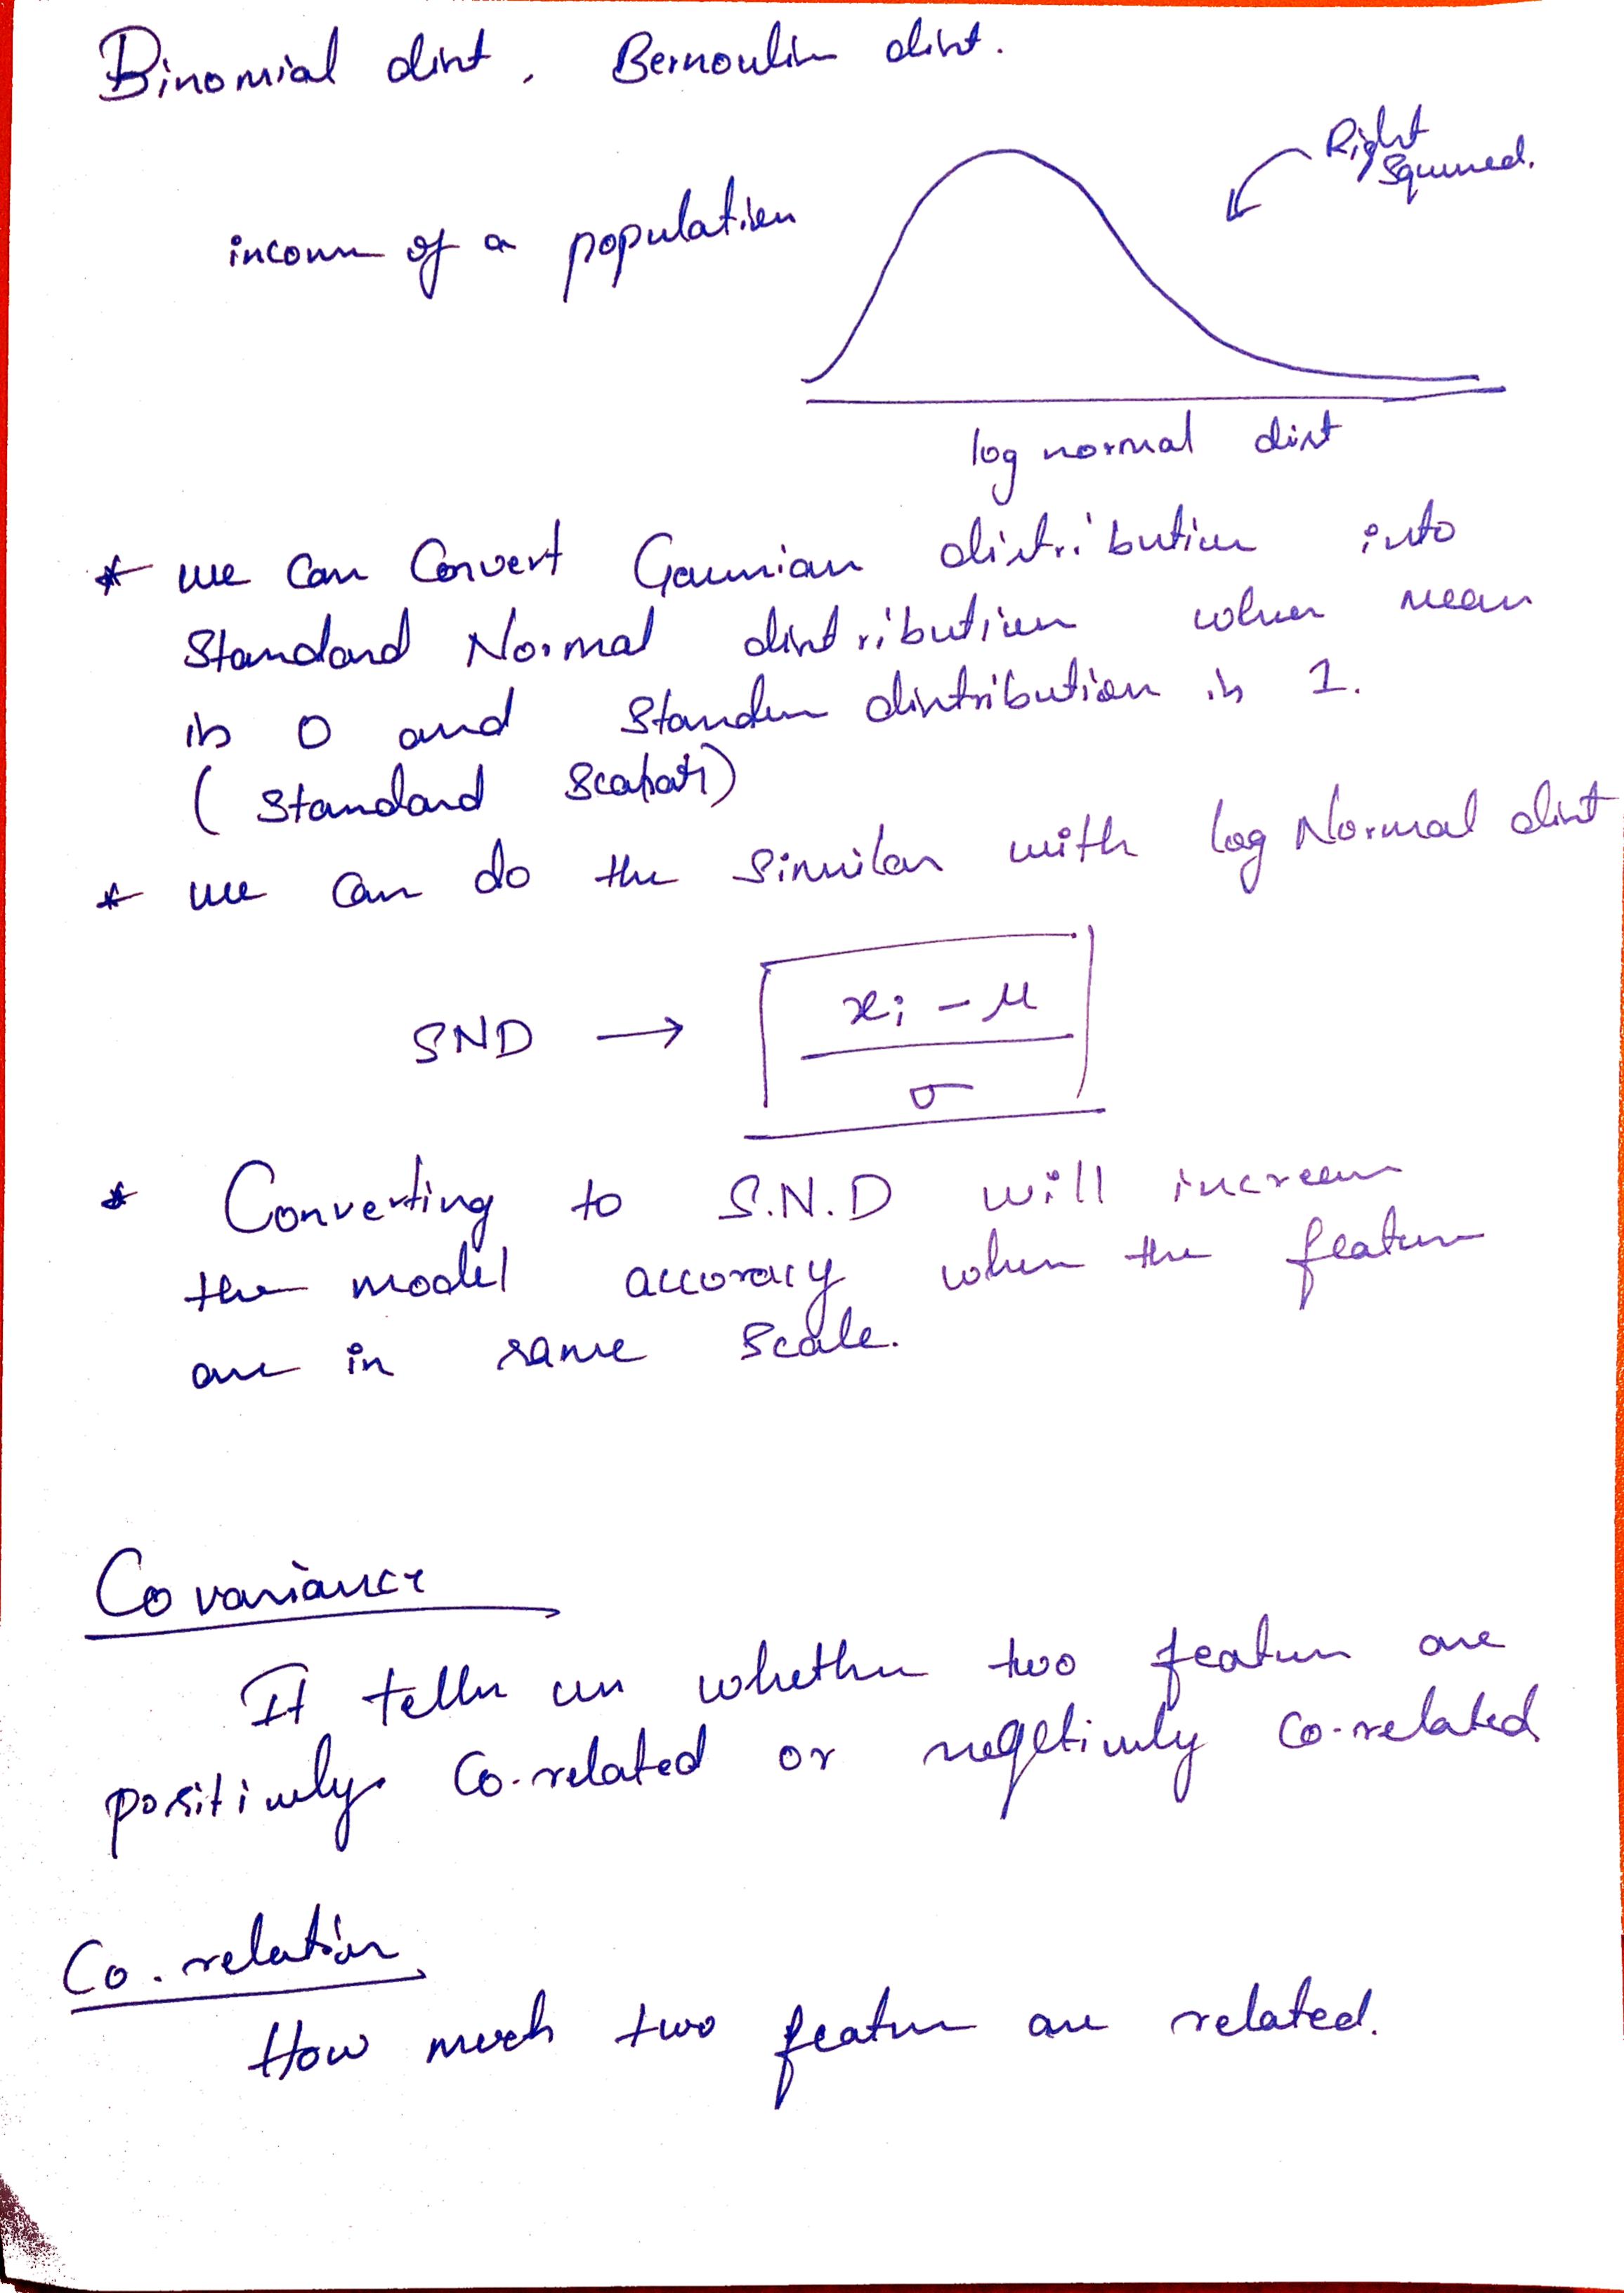 Binomial dist, Bernoulin dist.
Right
Squened.
income of a population
log normal dist
* we can Convert Gaussian distribution into
Standard Normal distribution when mean
is 0 and Standen distribution is 1.
( Standard
* we can do the similar with log Normal dist
SND → xi - μ
σ
* Converting to S.N.D will increase
the model accoracy when the feature
are in same Scale.
Co variance
It tells us whether two feature are
positively Co-related or negetively Co-related
Co-relation
How much two feature are related.